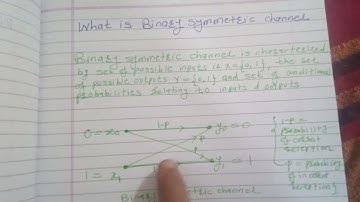 What is Binary symmetric channel
Binary symmetric channel is characterized
by set of possible inputs is x={0,1}, the set
of possible outputs Y={0,1} and set of conditional
probabilities relating to inputs & outputs
0=x₀ 1-p y₀=0
p
p
1=x₁ y₁=1
1-p =
probability
of correct
reception
p = probability
of incorrect
reception